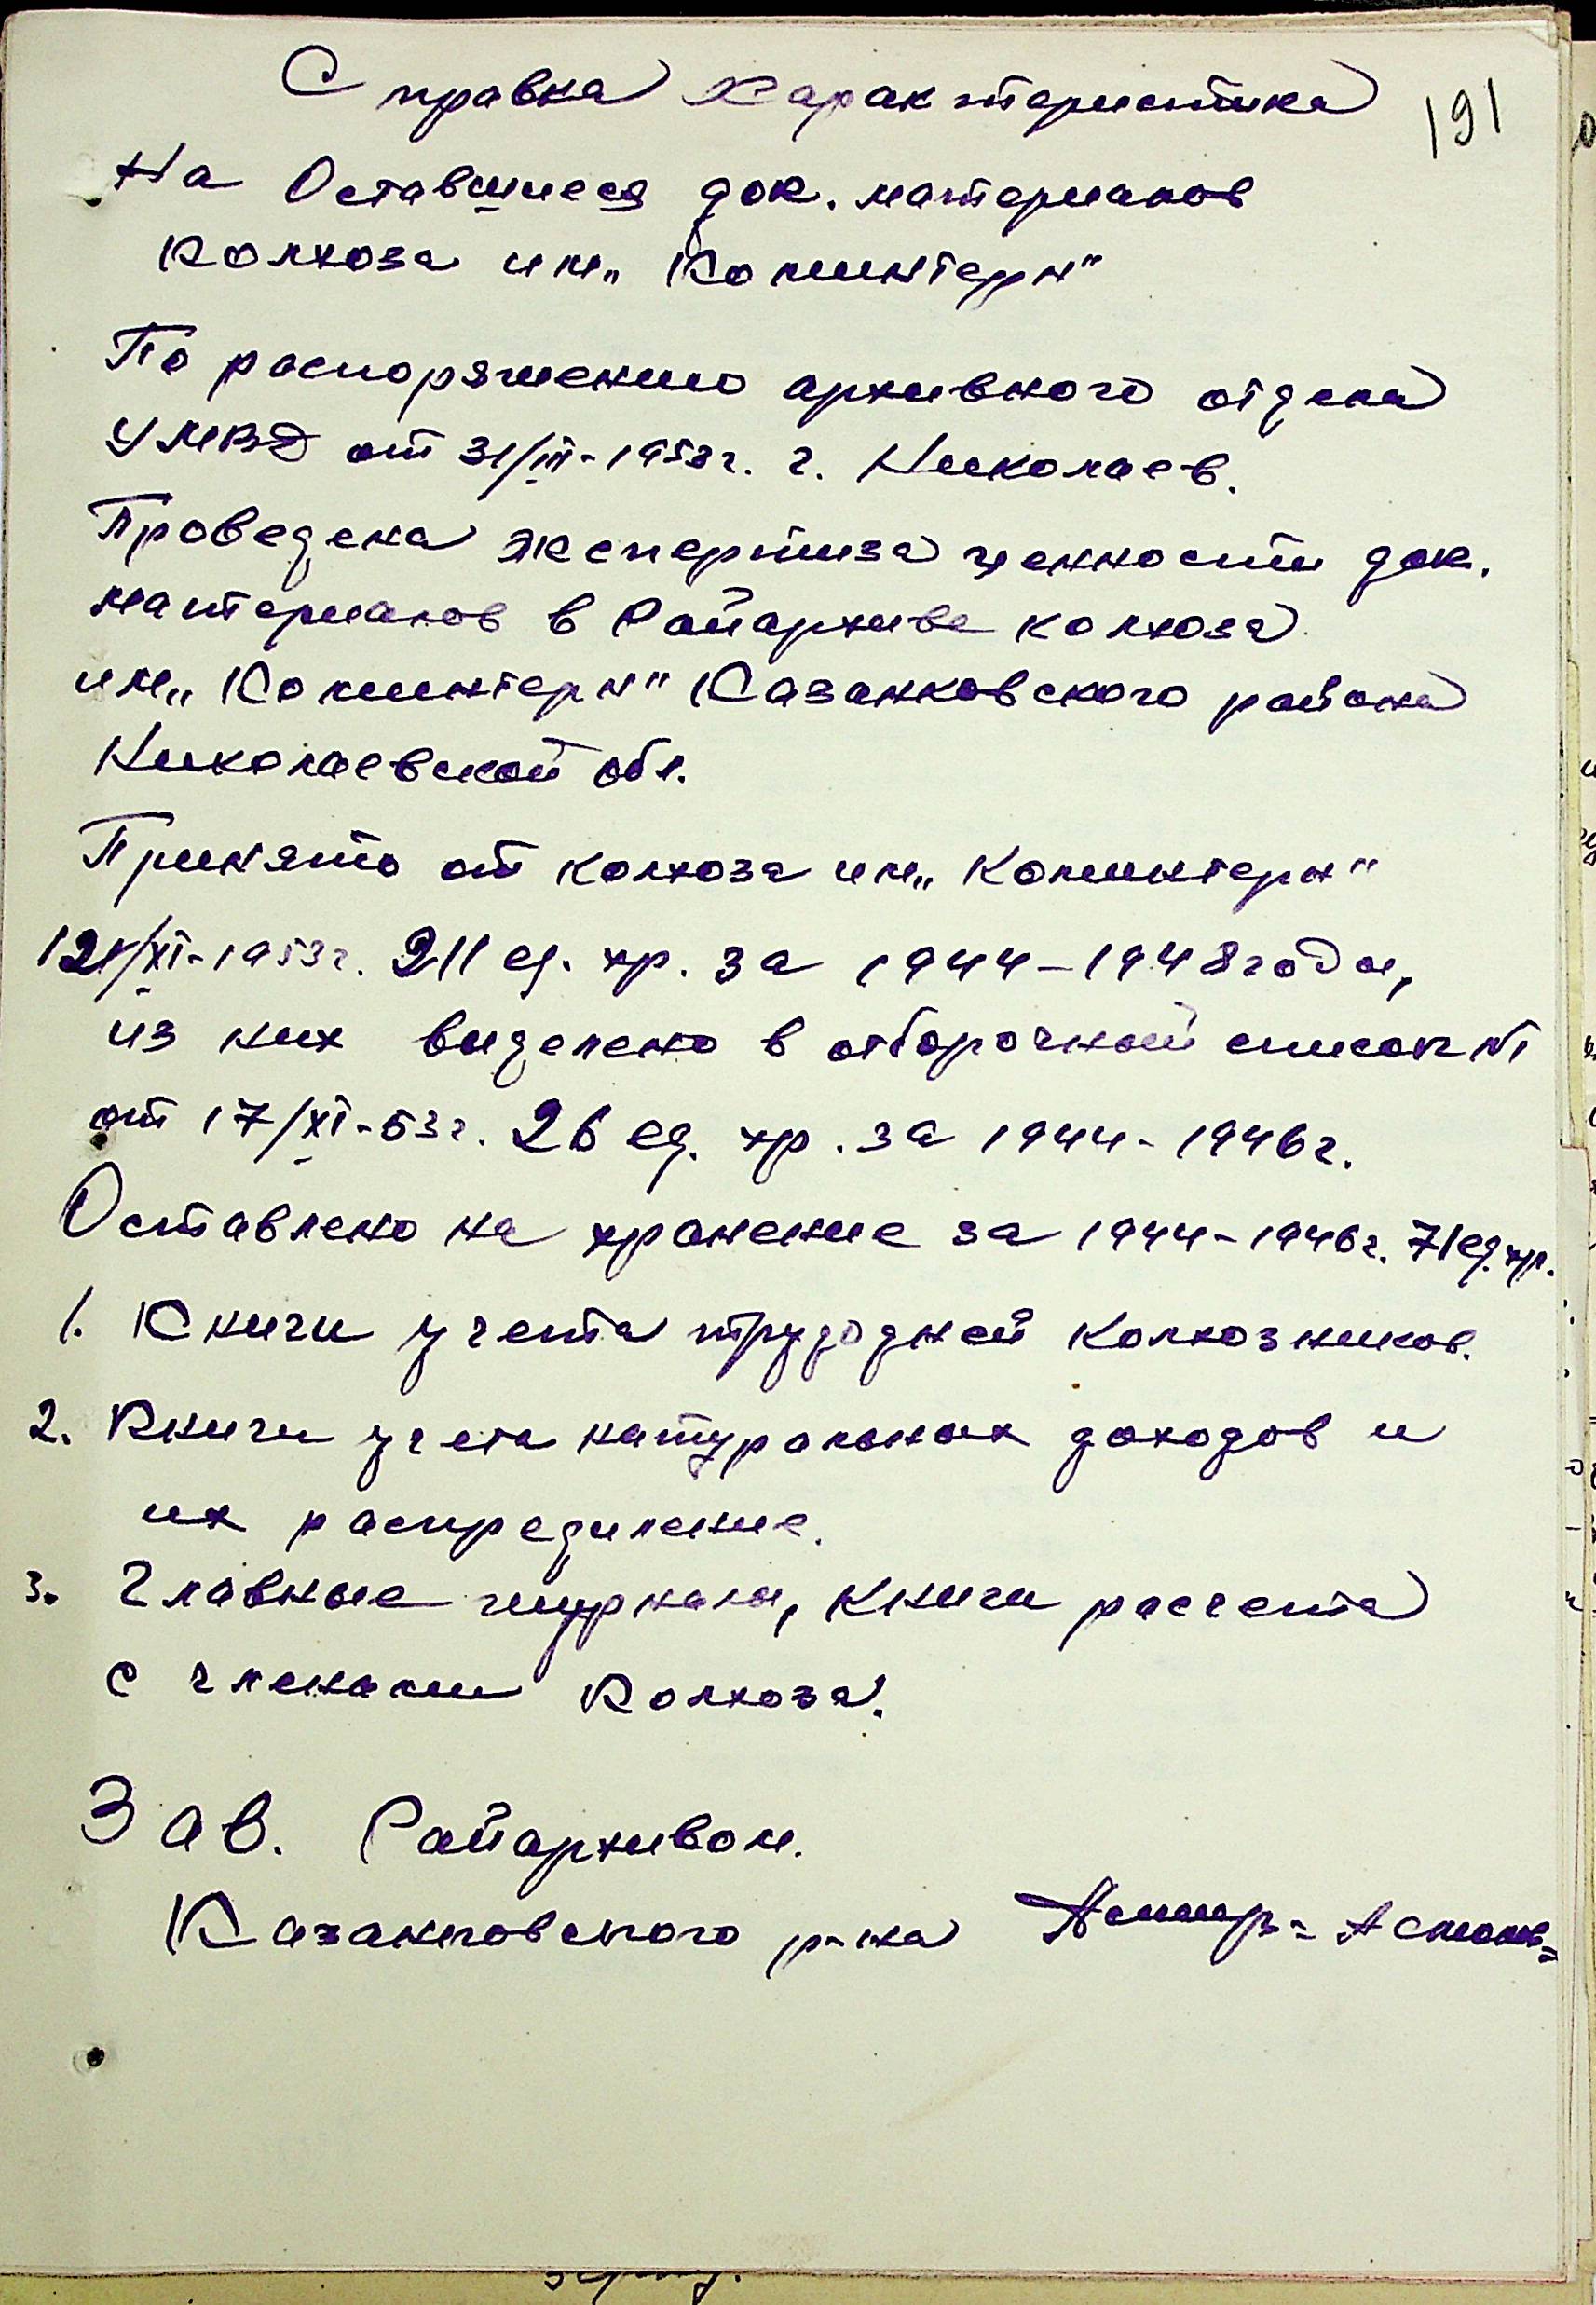 Справка Характеристика
191
На Оставшиеся док. материалов
колхоза им„ Коминтерн"
По распоряжению архивного отдела
УМВД от 31/III-1953г. г. Николаев.
Проведена экспертиза ценности док.
материалов в Райархиве колхоза
им„ Коминтерн" Казанковского района
Николаевской обл.
Принято от колхоза им„ Коминтерн"
/XI-1953г. 211 ед. хр. за 1944-1948 годы,
из них выделено в отборочный список №1
от 17/XI-53г. 26 ед. хр. за 1944-1946г.
Оставлено на хранение за 1944-1946г. 71 ед. хр.
1. Книги учета трудодней колхозников.
2. Книги учета натуральных доходов и
их распредиление.
3. Главные журналы, книги расчета
с членами колхоза.
Зав. Райархивом.
Казанковского р-на